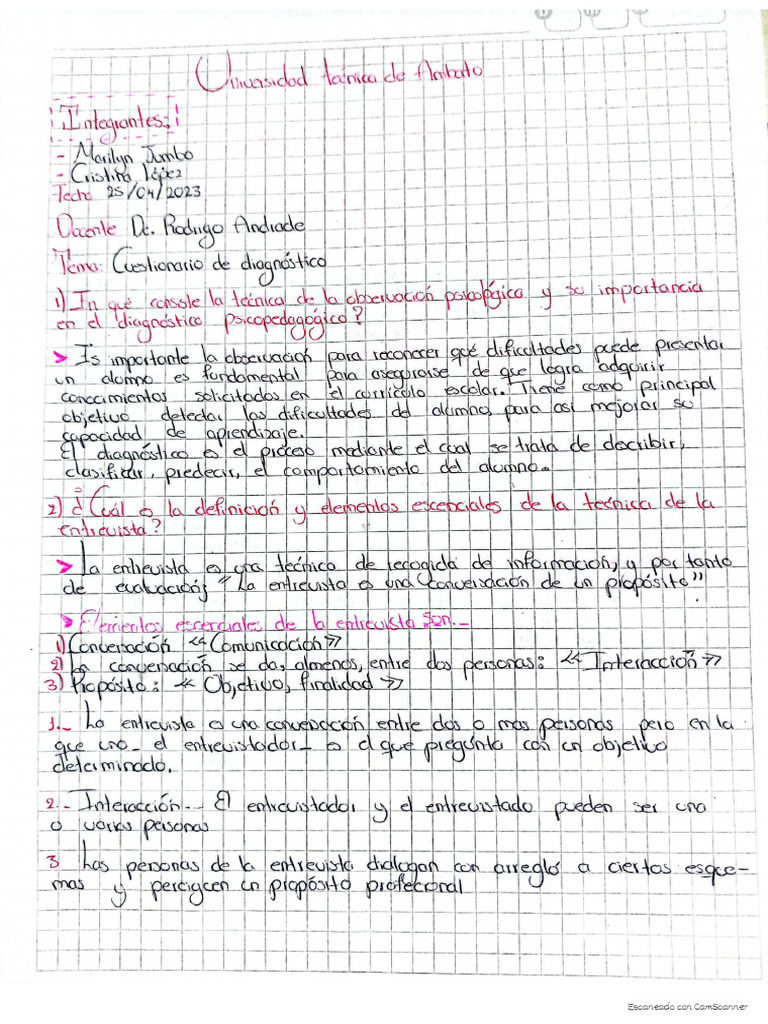 Universidad tecnica de Ambato
Integrantes:
- Marilyn Jumbo
- Cristina López
Fecha 25/04/2023
Docente Dc. Rodrigo Andrade
Tema: Cuestionario de diagnóstico
1) En qué consiste la técnica de la observación psicológica y su importancia
en el diagnóstico psicopedagógico?
> Es importante la observación para reconocer qué dificultades puede presentar
un alumno es fundamental para asegurarse de que logra adquirir
conocimientos solicitados en el currículo escolar. Tiene como principal
objetivo detectar las dificultades del alumno, para así mejorar su
capacidad de aprendizaje.
El diagnóstico es el proceso mediante el cual se trata de describir,
clasificar, predecir, el comportamiento del alumno.
2) ¿Cuál es la definición y elementos escenciales de la tecnica de la
entrevista?
> La entrevista es una tecnica de recogida de información, y por tanto
de evaluación; "La entrevista es una conversación de un propósito"
> Elementos escenciales de la entrevista son.-
1) Conversación << Comunicación >>
2) La conversación se da, almenos, entre dos personas: << Interacción >>
3) Propósito: << Objetivo, finalidad >>
1.- La entrevista es una conversación entre dos o mas personas pero en la
que uno - el entrevistador - es el que pregunta con un objetivo
determinado.
2.- Interacción.- El entrevistador y el entrevistado pueden ser una
o varias personas
3 Las personas de la entrevista dialogan con arreglo a ciertos esque-
mas y persiguen un propósito profecional
Escaneado con CamScanner